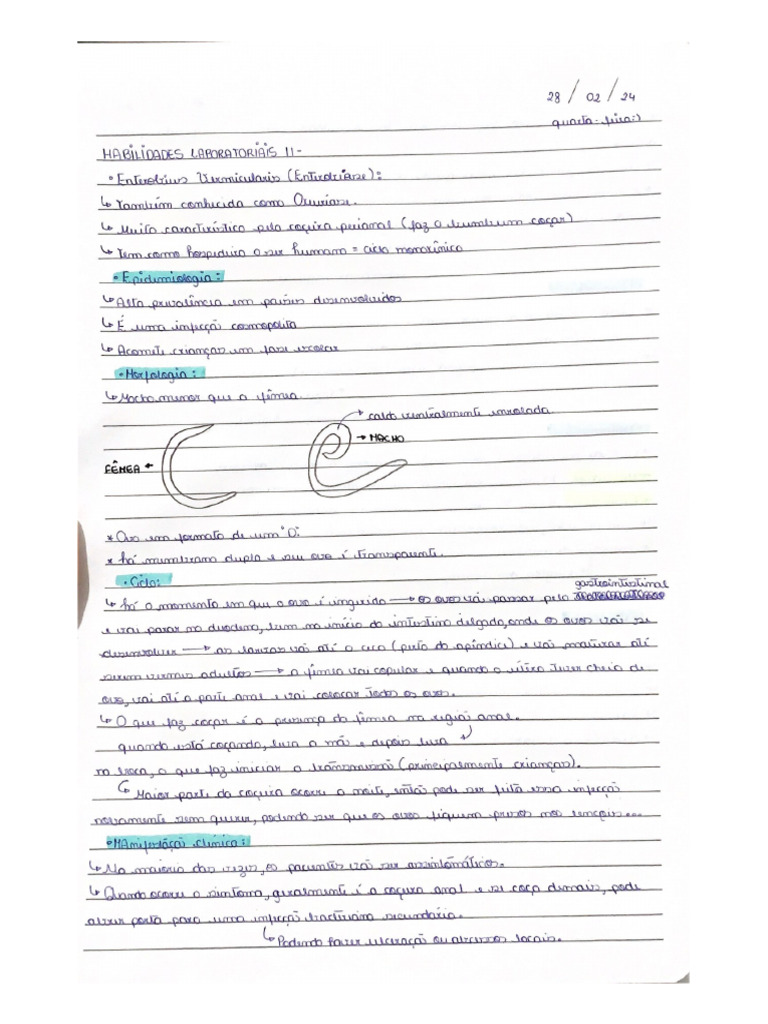 28 / 02 / 24
quarta-feira :)
HABILIDADES LABORATORIAIS II -
• Enterobius Vermicularis (Enterobíase):
↳ também conhecida como Oxiuríase.
↳ Muito característico pela coceira perianal (faz o bumbum coçar)
↳ Tem como hospedeiro o ser humano = ciclo monoxênico
• Epidemiologia:
↳ Alta prevalência em países desenvolvidos
↳ É uma infecção cosmopolita
↳ Acomete crianças em fase escolar
• Morfologia:
↳ Macho menor que a fêmea.
→ calda ventralmente enrolada
→ MACHO
FÊMEA ←
* Ovo em formato de um "D".
* há membrana dupla e seu ovo é transparente.
• Ciclo:
gastrointestinal
↳ há o momento em que o ovo é ingerido → os ovos vai passar pelo
e vai parar no duodeno, bem no início do intestino delgado, onde os ovos vai se
desenvolver → as larvas vai até o ceco (perto do apêndice) e vai maturar até
serem vermes adultos → a fêmea vai copular e quando o útero tiver cheio de
ovo, vai até a parte anal e vai colocar todos os ovos.
↳ O que faz coçar é a presença da fêmea na região anal.
quando está coçando, leva a mão e depois leva
na boca, o que faz iniciar a transmissão (principalmente crianças).
↳ Maior parte da coceira ocorre a noite, então pode ser feita essa infecção
novamente sem querer, podendo ser que os ovos fiquem presos nos lençois...
• MAnifestação clínica:
↳ Na maioria das vezes, os pacientes vai ser assintomáticos.
↳ Quando ocorre o sintoma, geralmente é a coceira anal e se coça demais, pode
abrir porta para uma infecção bacteriana secundária.
↳ Podendo fazer ulceração ou abcessos locais.